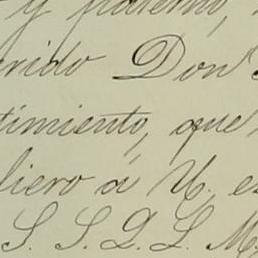 y fraterno,
rido Don
timiento, que
fiero á U. es
S. S. Q. L. M.